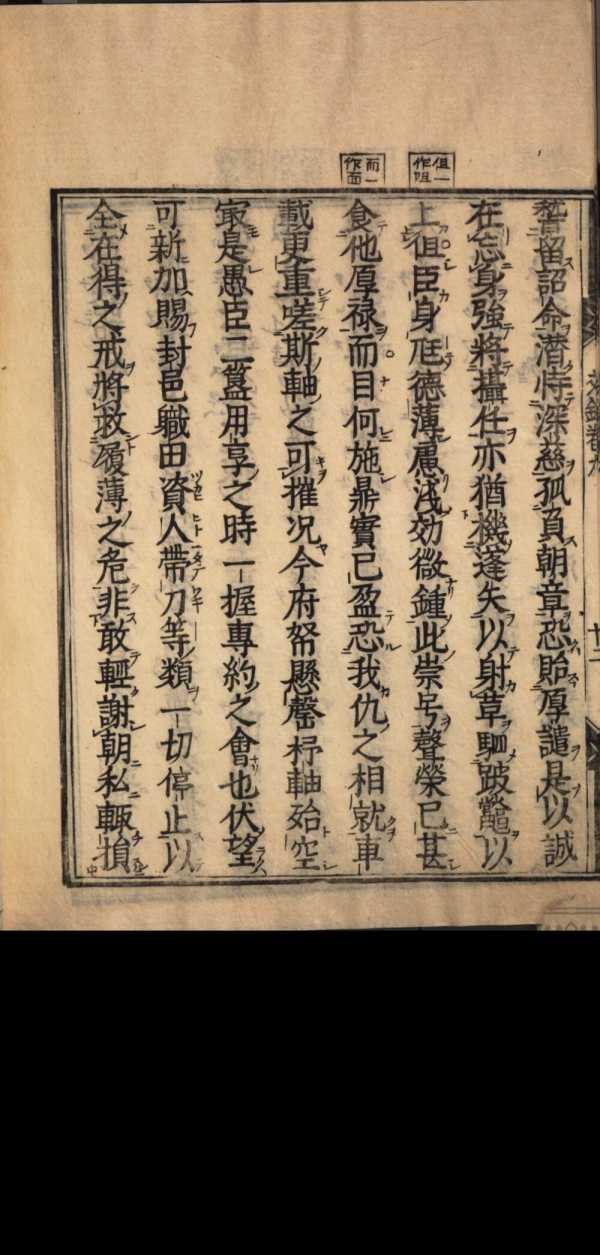 但一作阻
而一作面
稽留詔命潜恃深慈孤負朝章恐貽厚譴是以誠
在忘身強將攝任亦猶機蓬矢以射革駟跛鼈以
上但臣身尫德薄慮淺効微鍾此崇号聲榮已甚
食他厚禄而目何施鼎實已盈恐我仇之相就車
載更重嗟斯軸之可摧况今府帑懸罄杼軸殆空
寔是愚臣二簋用享之時一握專約之會也伏望
可新加賜封邑職田資人帶刀等類一切停止以
全在得之戒將救履薄之危非敢輕謝朝私輙損